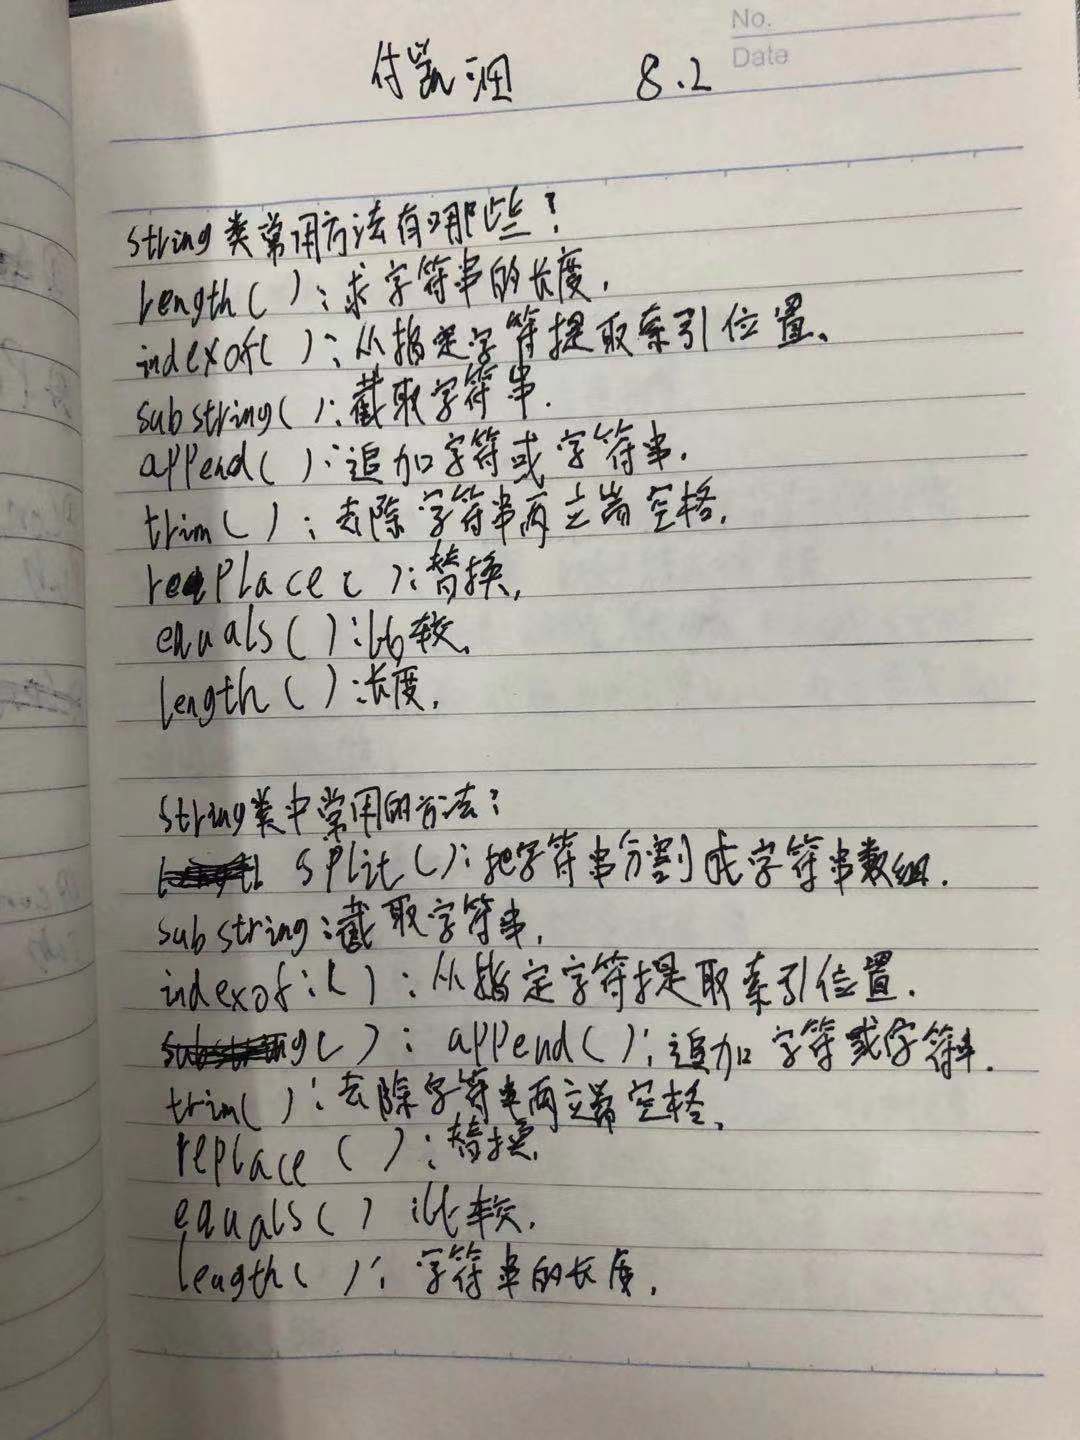 No.
Date
付凯洇 8.2
string类常用方法有哪些?
length():求字符串的长度.
indexof():从指定字符提取索引位置、
substring():截取字符串.
append():追加字符或字符串.
trim():去除字符串两端空格.
replace():替换.
equals():比较.
length():长度.
string类中常用的方法:
split():把字符串分割成字符串数组.
substring:截取字符串.
indexof:():从指定字符提取索引位置.
g():append():追加字符或字符串.
trim():去除字符串两端空格.
replace():替换.
equals():比较.
length():字符串的长度.